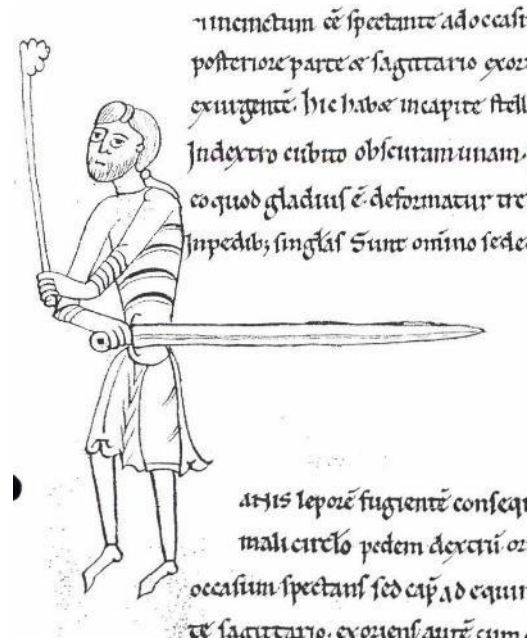 uincinctum cē spectante ad occasū
posteriore parte & sagittario exor
exurgente. hic habæ incapite stell
Indextro cubito obscuram unam.
eo quod gladius ē deformatur tre
Inpedib; singłas Sunt omīno sede
anis leporē fugientē consequ
mali circło pedem dextrū or
occasum spectans sed cap̄ ad equin
te sagittario. exoriens autē cum